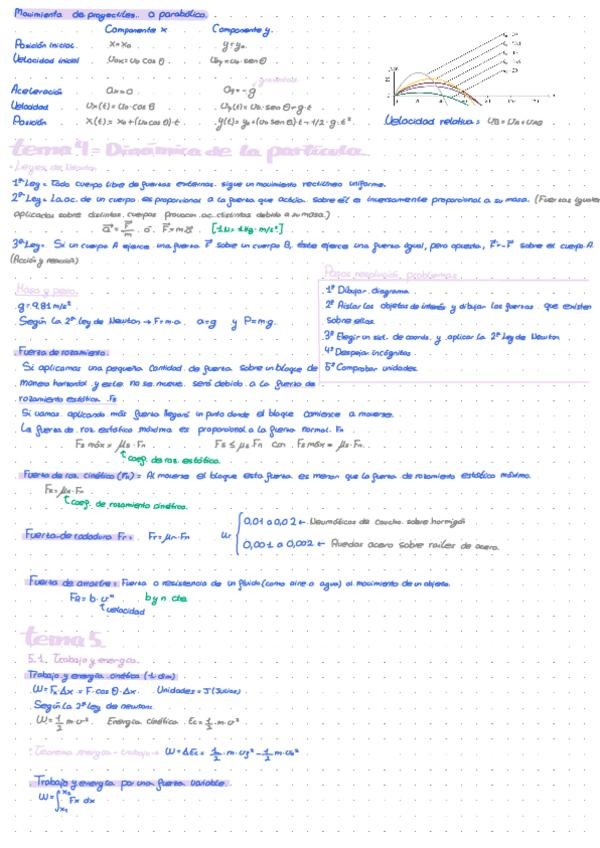 Movimiento de proyectiles.. o parabólico.
Componente x Componente y.
Posición inicial. x=x₀ y=y₀.
Velocidad inicial U₀x=U₀ cos θ. U₀y=U₀·senθ
gravedad
Aceleración ax=0. ay=-g
Velocidad Ux(t)=U₀·cosθ Uy(t)=U₀·senθ-g·t
Posición x(t)=x₀+(U₀cosθ)·t. y(t)=y₀+(U₀senθ)·t-1/2·g·t². Velocidad relativa=
tema 4= Dinámica de la partícula.
-Leyes de Newton
1ªLey= Todo cuerpo libre de fuerzas externas. sigue un movimiento rectilíneo uniforme.
2ªLey= La ac. de un cuerpo es proporcional a la fuerza que actúa sobre él es inversamente proporcional a su masa. (Fuerzas iguales
aplicadas sobre distintos cuerpos provocan ac. distintas debido a su masa.)
a=F/m ó F=m·a [1N=1kg·m/s²]
3ªLey= Si un cuerpo A ejerce una fuerza F sobre un cuerpo B, éste ejerce una fuerza igual, pero opuesta, F=-F sobre el cuerpo A.
(Acción y reacción)
Pasos resolución problemas.
Masa y peso.
g=9.81m/s²
Según la 2ª ley de Newton → F=m·a a=g y P=m·g.
1º Dibujar diagrama
2º Aislar los objetos de interés y dibujar las fuerzas que existen
sobre ellos.
3º Elegir un sist. de coords. y aplicar la 2ªLey de Newton
4º Despejar incógnitas
5º Comprobar unidades.
Fuerza de rozamiento.
Si aplicamos una pequeña cantidad de fuerza sobre un bloque de
manera horizontal y este no se mueve. será debido a la fuerza de
rozamiento estática. Fs
Si vamos aplicando más fuerza llegará un punto donde el bloque comience a moverse.
La fuerza de roz estática máxima es proporcional a la fuerza normal. Fn
Fs máx=μs·Fn Fs≤μs·Fn con Fs máx=μs·Fn.
↑coef. de roz. estática.
Fuerza de roz. cinética (Fk)= Al moverse el bloque esta fuerza es menor que la fuerza de rozamiento estático máxima.
Fk=μk·Fn
↑coef. de rozamiento cinético.
Fuerza de rodadura Fr= Fr=μr·Fn Ur
0,01 a 0,02 ← Neumáticos de caucho sobre hormigón
0,001 a 0,002 ← Ruedas acero sobre raíles de acero.
Fuerza de arrastre= Fuerza o resistencia de un fluido (como aire o agua) al movimiento de un objeto.
b·vⁿ b y n cte
↑velocidad
tema 5
5.1. Trabajo y energía.
Trabajo y energía cinética (1·dim)
W=Fx·Δx=F·cosθ·Δx. Unidades=J (Julios)
Según la 2ªley de newton:
W=1/2 m·v². Energía cinética Ec=1/2·m·v²
Teorema energía-trabajo → W=ΔEc=1/2·m·vf²-1/2·m·v₀²
Trabajo y energía por una fuerza variable.
W=∫x₁ x₂ Fx dx